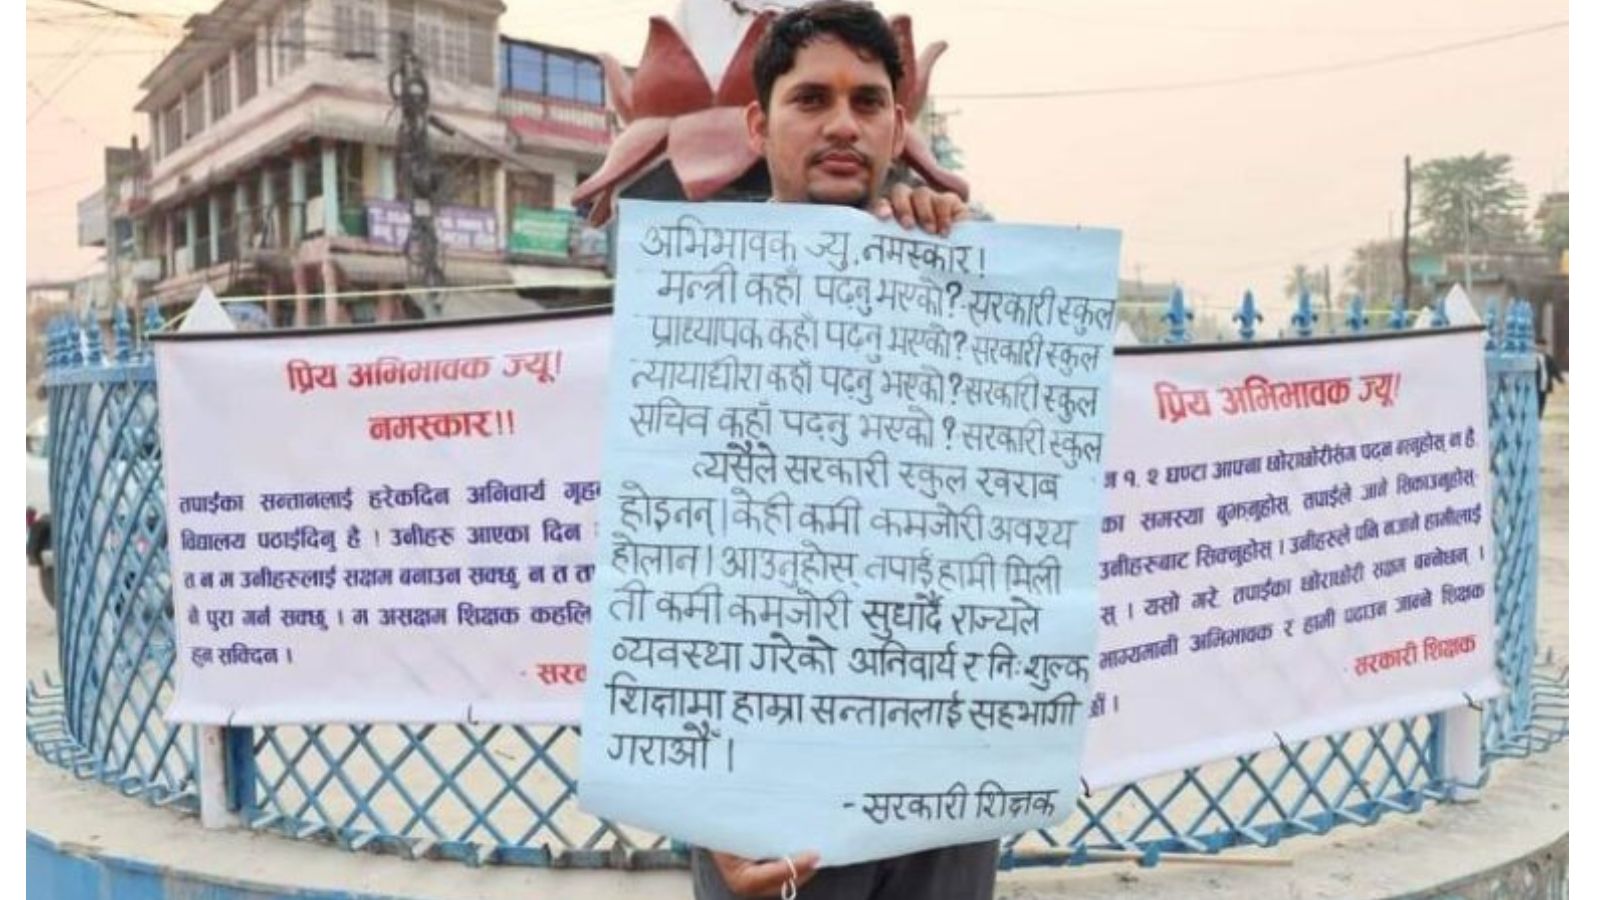 अभिभावक ज्यु. नमस्कार!
मन्त्री कहाँ पढ्नु भएको? सरकारी स्कुल
प्राध्यापक कहाँ पढ्नु भएको? सरकारी स्कुल
न्यायाधीश कहाँ पढ्नु भएको? सरकारी स्कुल
सचिव कहाँ पढ्नु भएको? सरकारी स्कुल
त्यसैले सरकारी स्कुल खराब
होइनन्। केही कमी कमजोरी अवश्य
होलान। आउनुहोस् तपाईं हामी मिली
ती कमी कमजोरी सुधार्दै राज्यले
व्यवस्था गरेको अनिवार्य र निःशुल्क
शिक्षामा हाम्रा सन्तानलाई सहभागी
गराऔँ।
- सरकारी शिक्षक
प्रिय अभिभावक ज्यू!
नमस्कार!!
तपाईका सन्तानलाई हरेकदिन अनिवार्य
विद्यालय पठाईदिनु है । उनीहरु आएका दिन
त न म उनीहरुलाई सक्षम बनाउन सक्छु, न त
नै पुरा गर्न सक्छु । म असक्षम शिक्षक
हुन सक्दिन ।
प्रिय अभिभावक ज्यू!
१. २ घण्टा आफ्ना छोराछोरीसँग पढ्न बस्नुहोस् न है.
का समस्या बुझ्नुहोस्, तपाईले जाने सिकाउनुहोस्-
उनीहरुबाट सिक्नुहोस् । उनीहरुले पनि नजाने हामीलाई
स् । यसो गरे, तपाईका छोराछोरी सक्षम बन्नेछन् ।
भाग्यमानी अभिभावक र हामी पढाउन जान्ने शिक्षक
- सरकारी शिक्षक